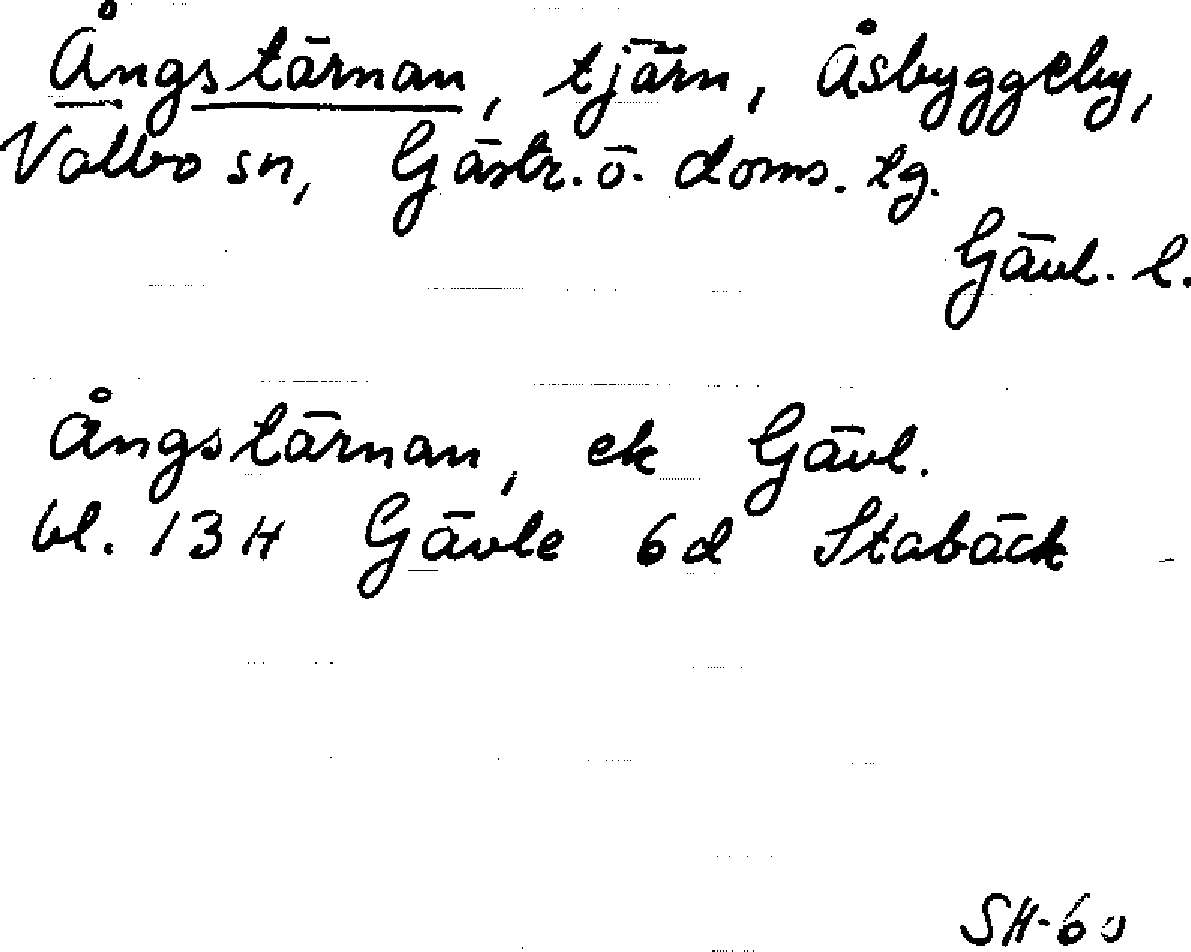 Ångstärnan, tjärn, Åsbyggeby,
Valbo sn, Gästr. ö. doms. tg.
Gävl. l.
Ångstärnan, ek Gävl.
bl. 13 H Gävle 6 d Stabäck
SH-60